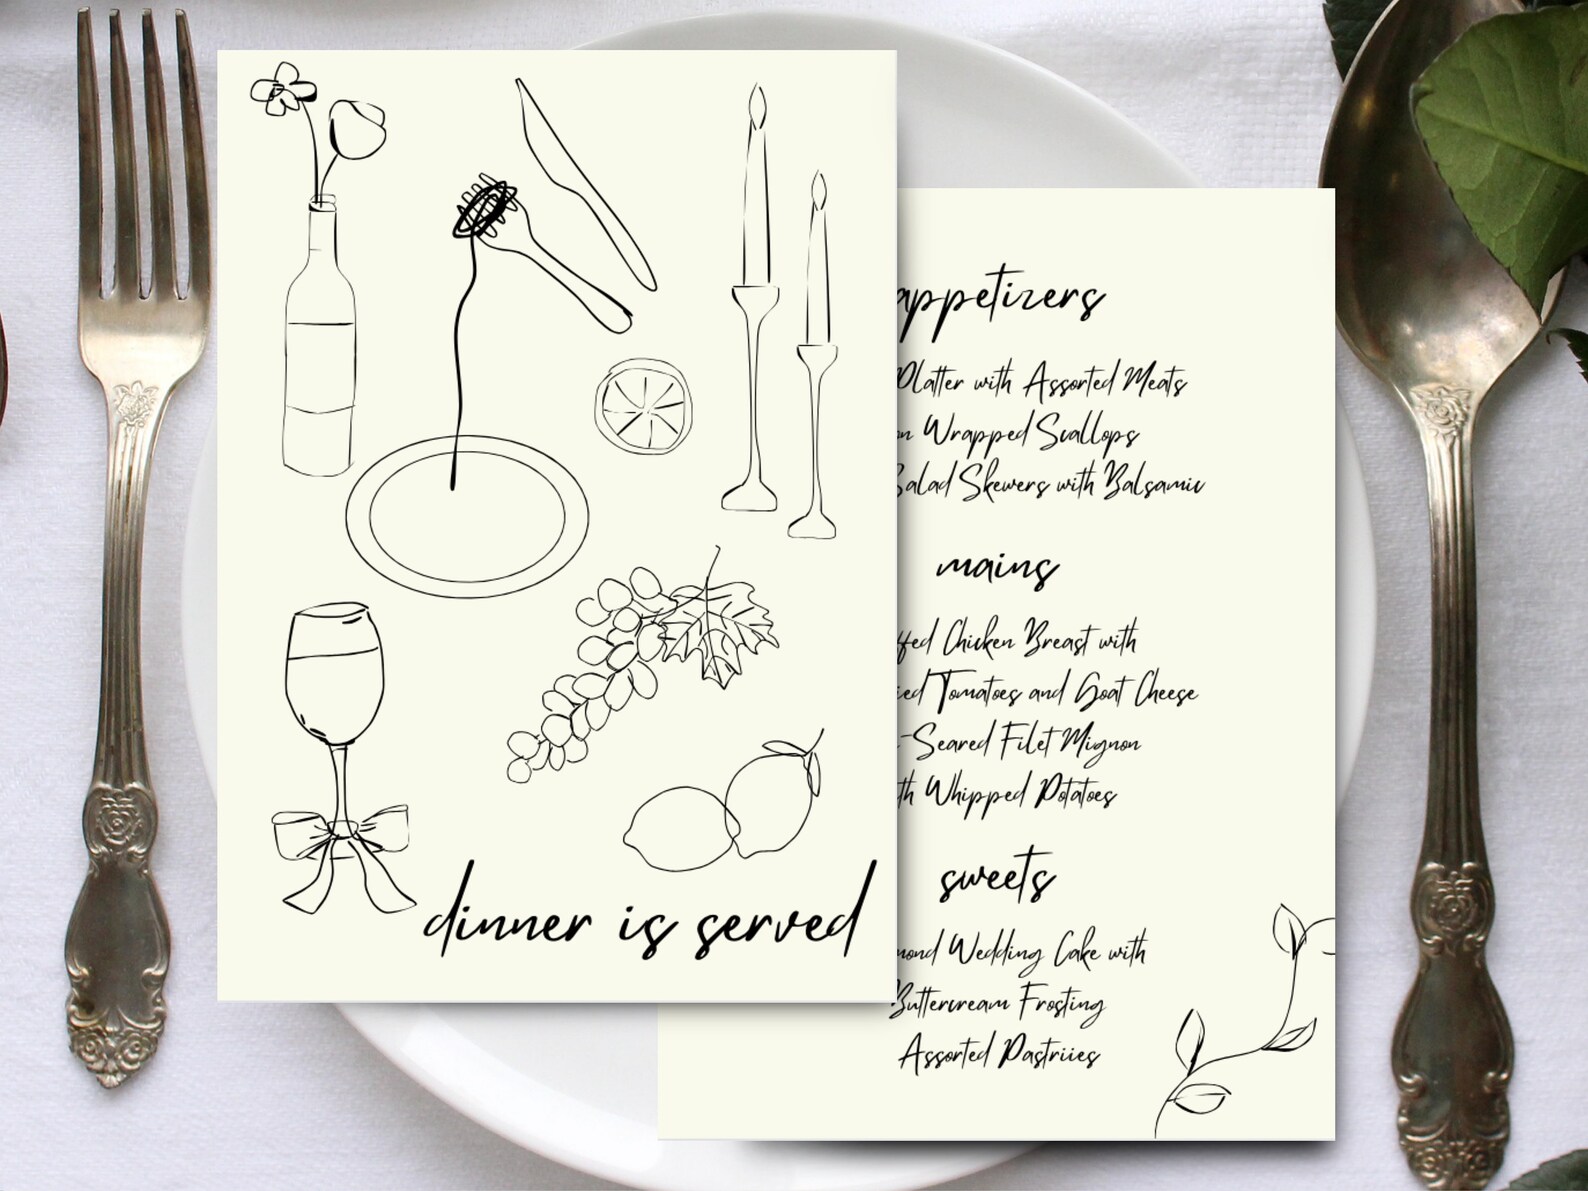 dinner is served
appetizers
Platter with Assorted Meats
Wrapped Scallops
Salad Skewers with Balsamic
mains
Chicken Breast with
Tomatoes and Goat Cheese
-Seared Filet Mignon
Whipped Potatoes
sweets
Wedding Cake with
Buttercream Frosting
Assorted Pastriies